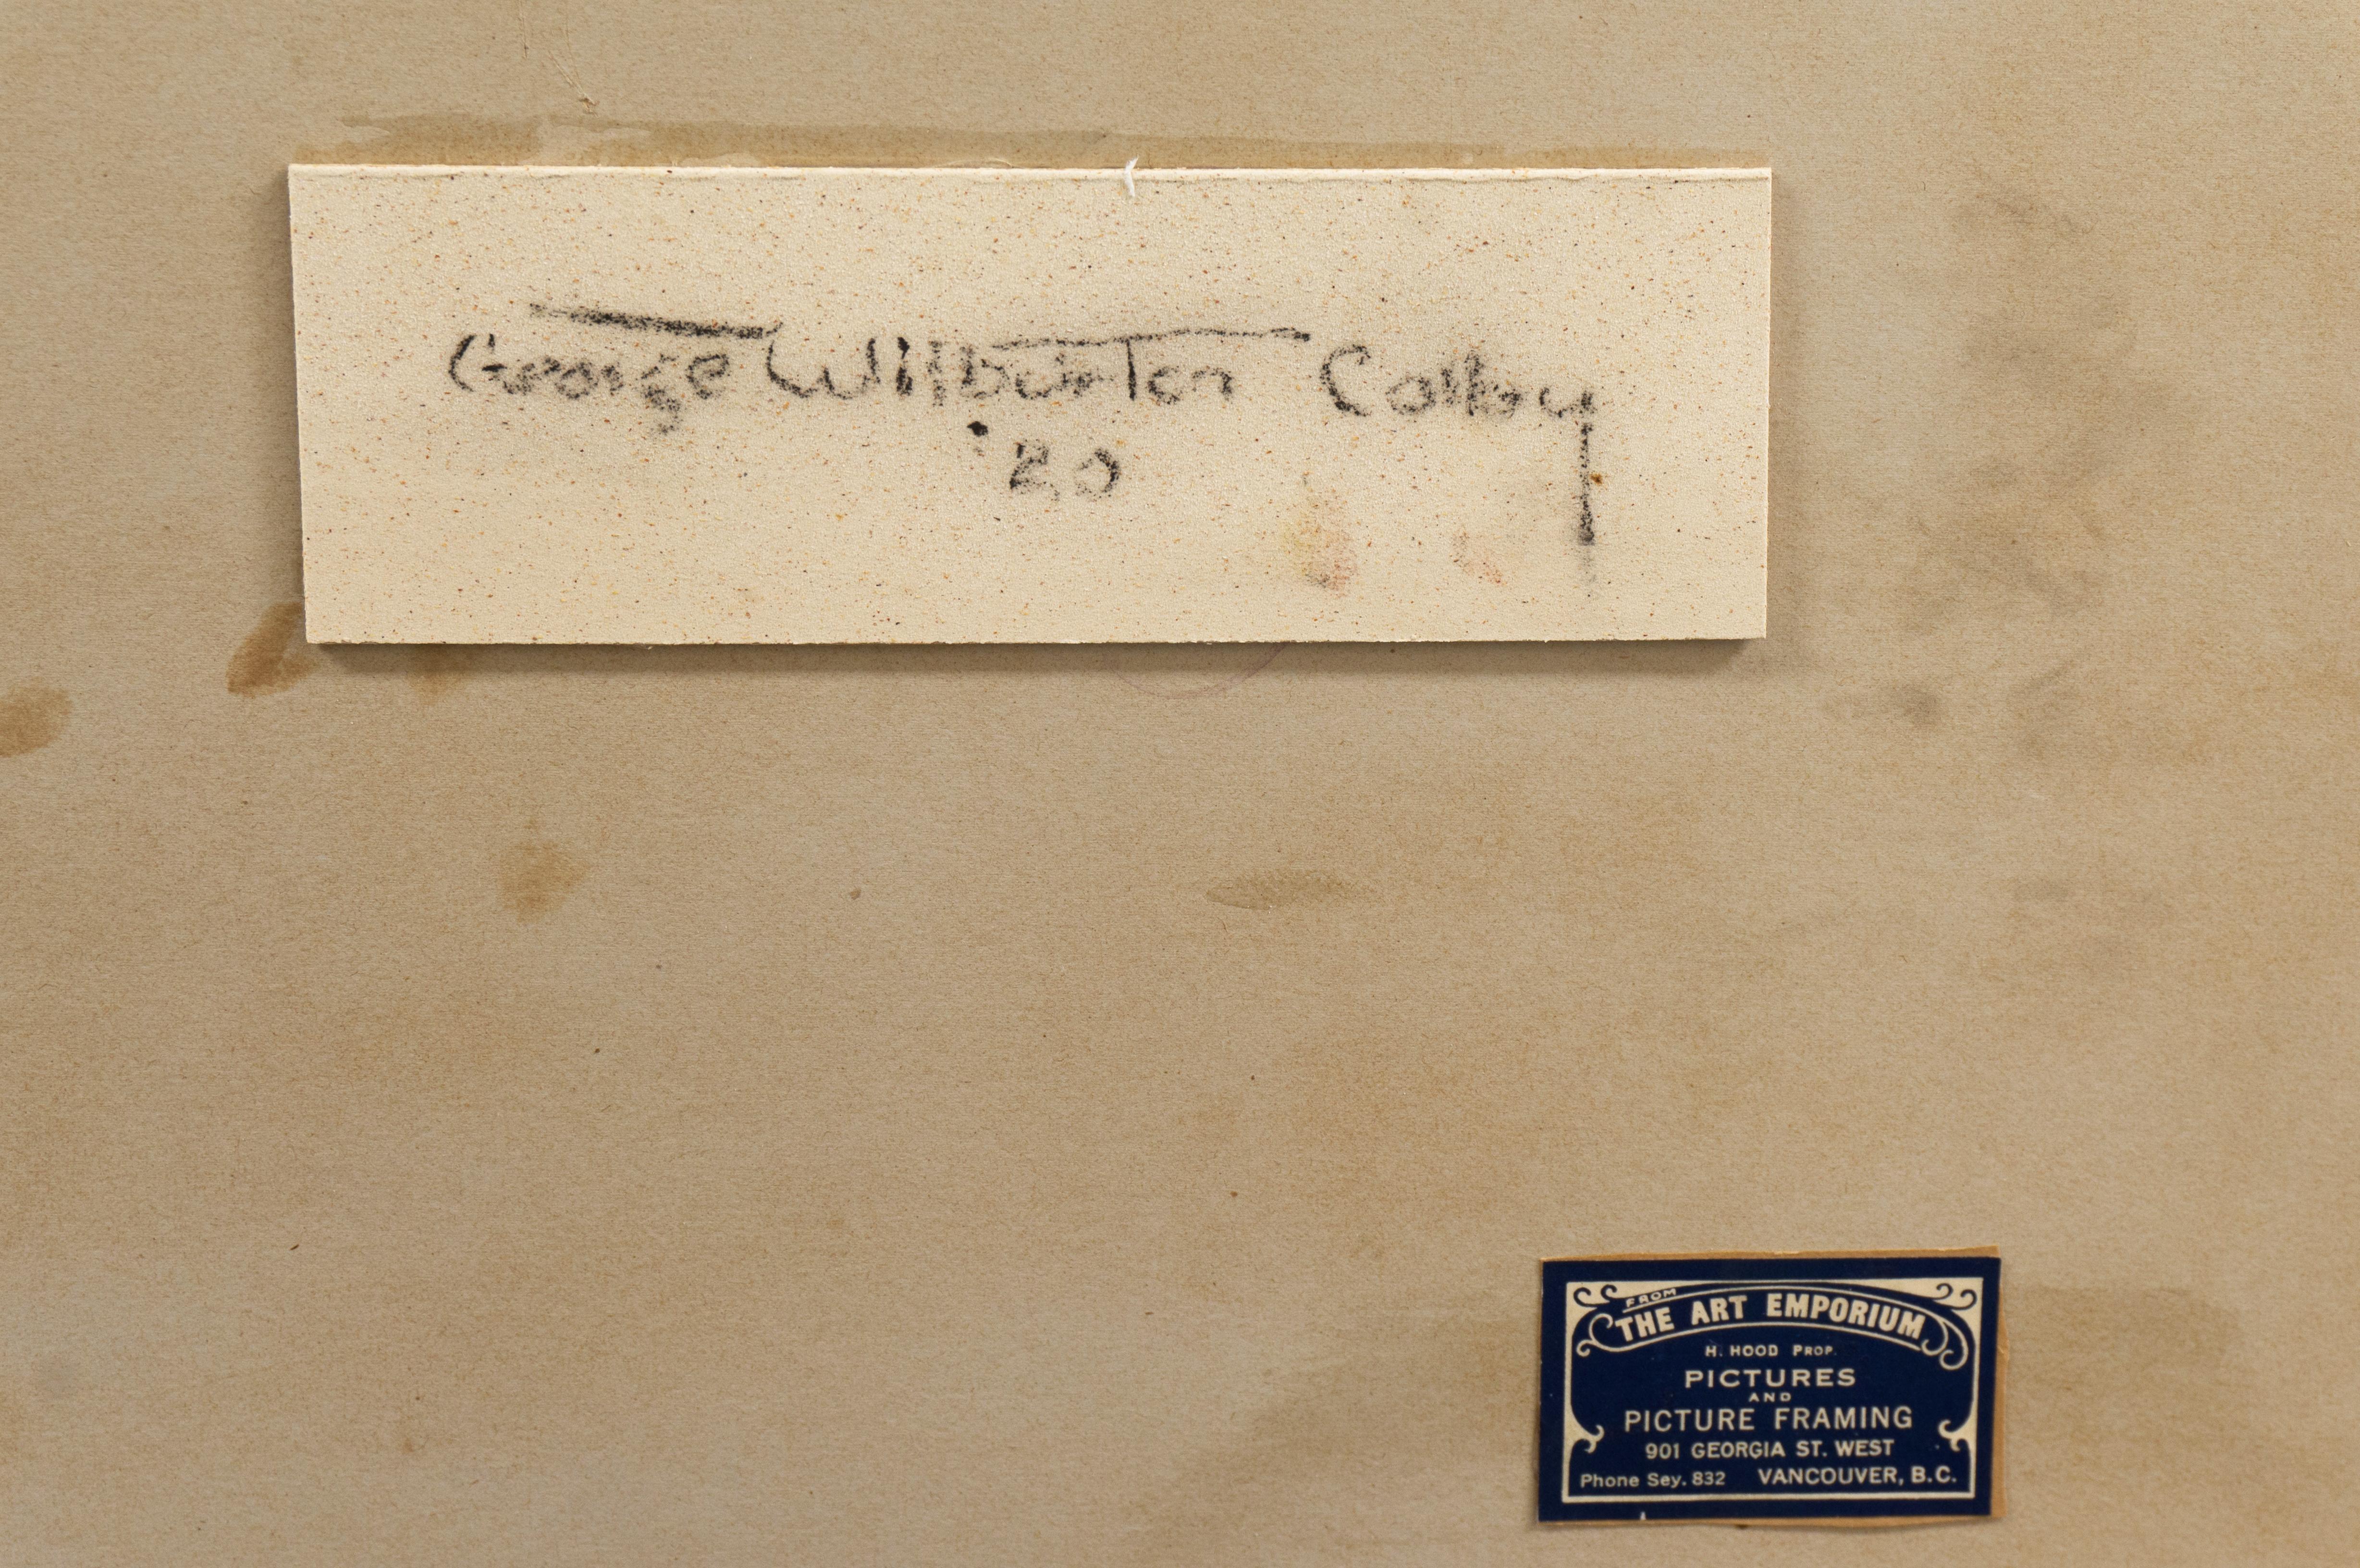 George Wilburton Colby
'20
FROM
THE ART EMPORIUM
H. HOOD PROP.
PICTURES
AND
PICTURE FRAMING
901 GEORGIA ST. WEST
Phone Sey. 832 VANCOUVER, B.C.